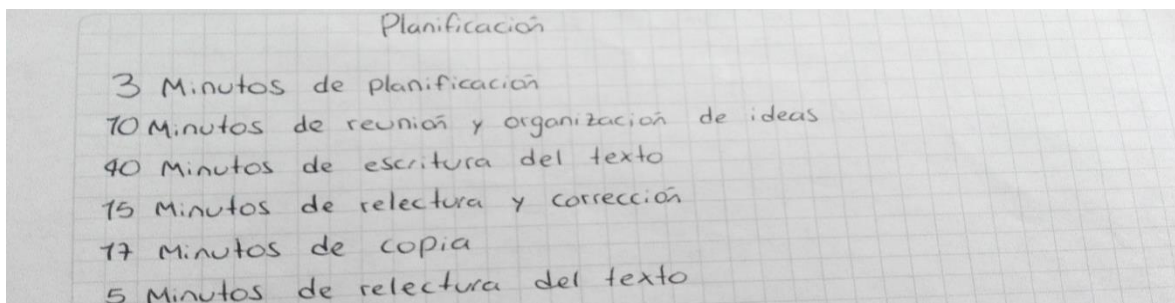 Planificación
3 Minutos de planificación
10 Minutos de reunión y organización de ideas
40 Minutos de escritura del texto
15 Minutos de relectura y corrección
17 Minutos de copia
5 Minutos de relectura del texto